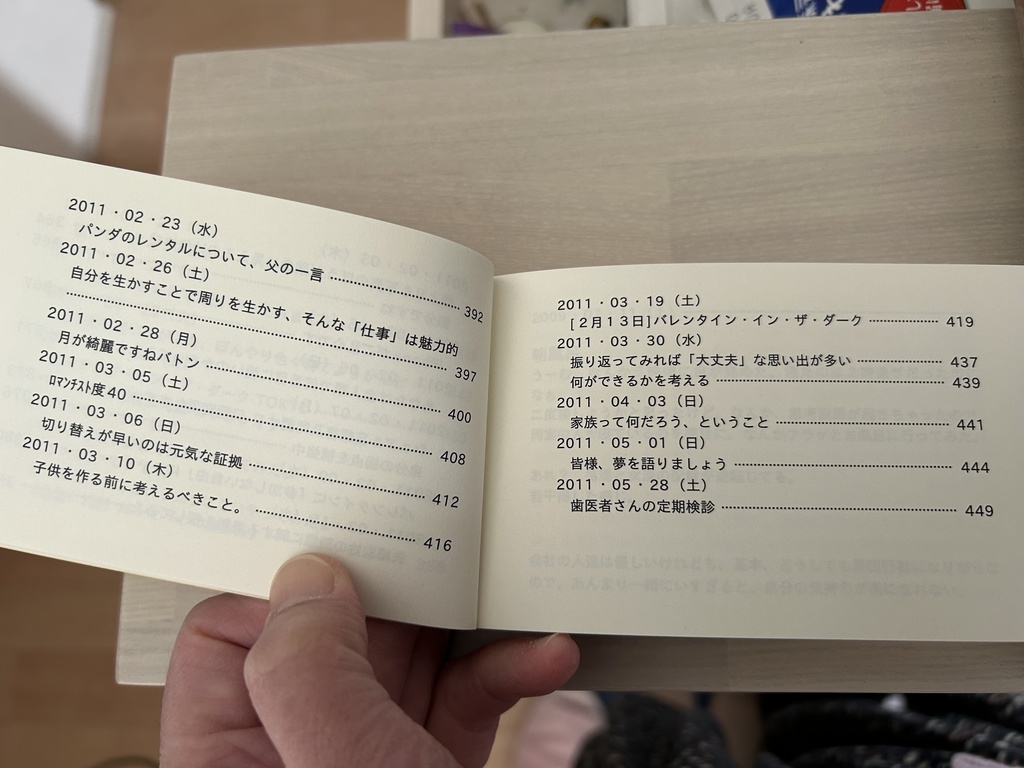 2011・02・23（水）
パンダのレンタルについて、父の一言 …… 392
2011・02・26（土）
自分を生かすことで周りを生かす、そんな「仕事」は魅力的
…… 397
2011・02・28（月）
月が綺麗ですねバトン …… 400
2011・03・05（土）
ﾛﾏﾝﾁｽﾄ度40 …… 408
2011・03・06（日）
切り替えが早いのは元気な証拠 …… 412
2011・03・10（木）
子供を作る前に考えるべきこと。 …… 416
2011・03・19（土）
[２月１３日]バレンタイン・イン・ザ・ダーク …… 419
2011・03・30（水）
振り返ってみれば「大丈夫」な思い出が多い …… 437
何ができるかを考える …… 439
2011・04・03（日）
家族って何だろう、ということ …… 441
2011・05・01（日）
皆様、夢を語りましょう …… 444
2011・05・28（土）
歯医者さんの定期検診 …… 449